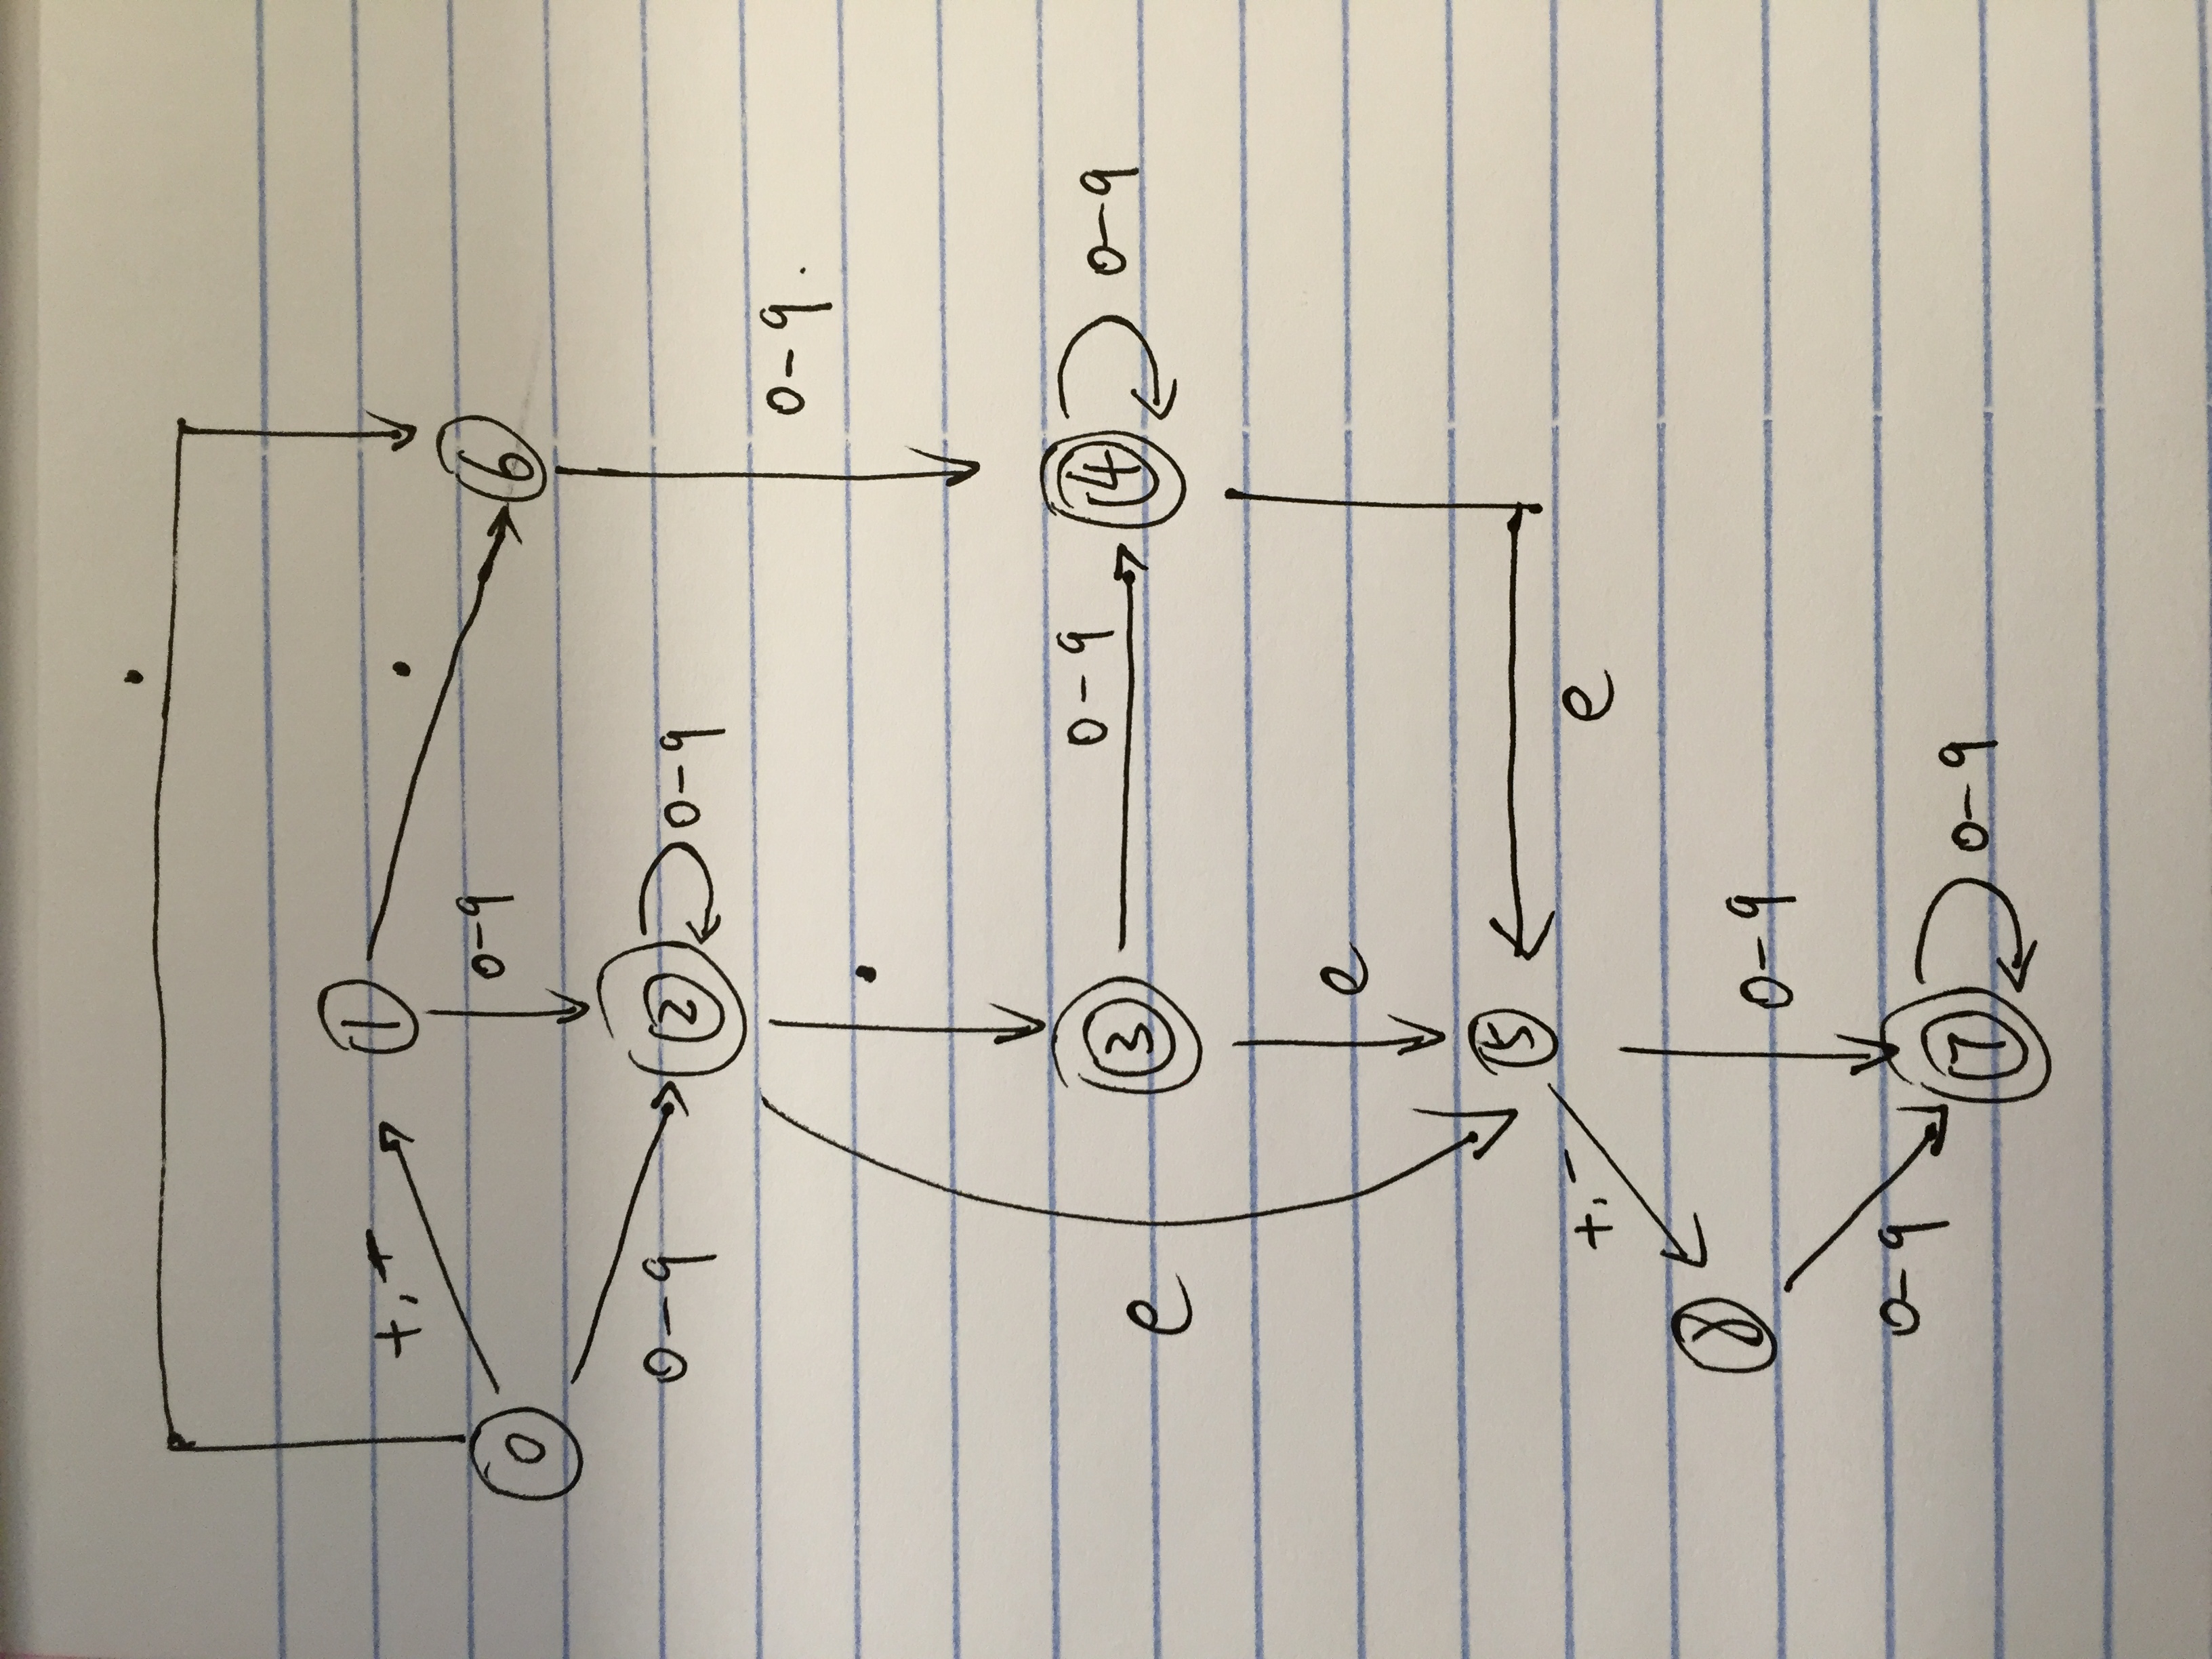 .
+, -
1
.
0-9
6
0
0-9
2
0-9
0-9.
.
0-9
3
4
0-9
e
e
5
+, -
e
8
0-9
0-9
7
0-9